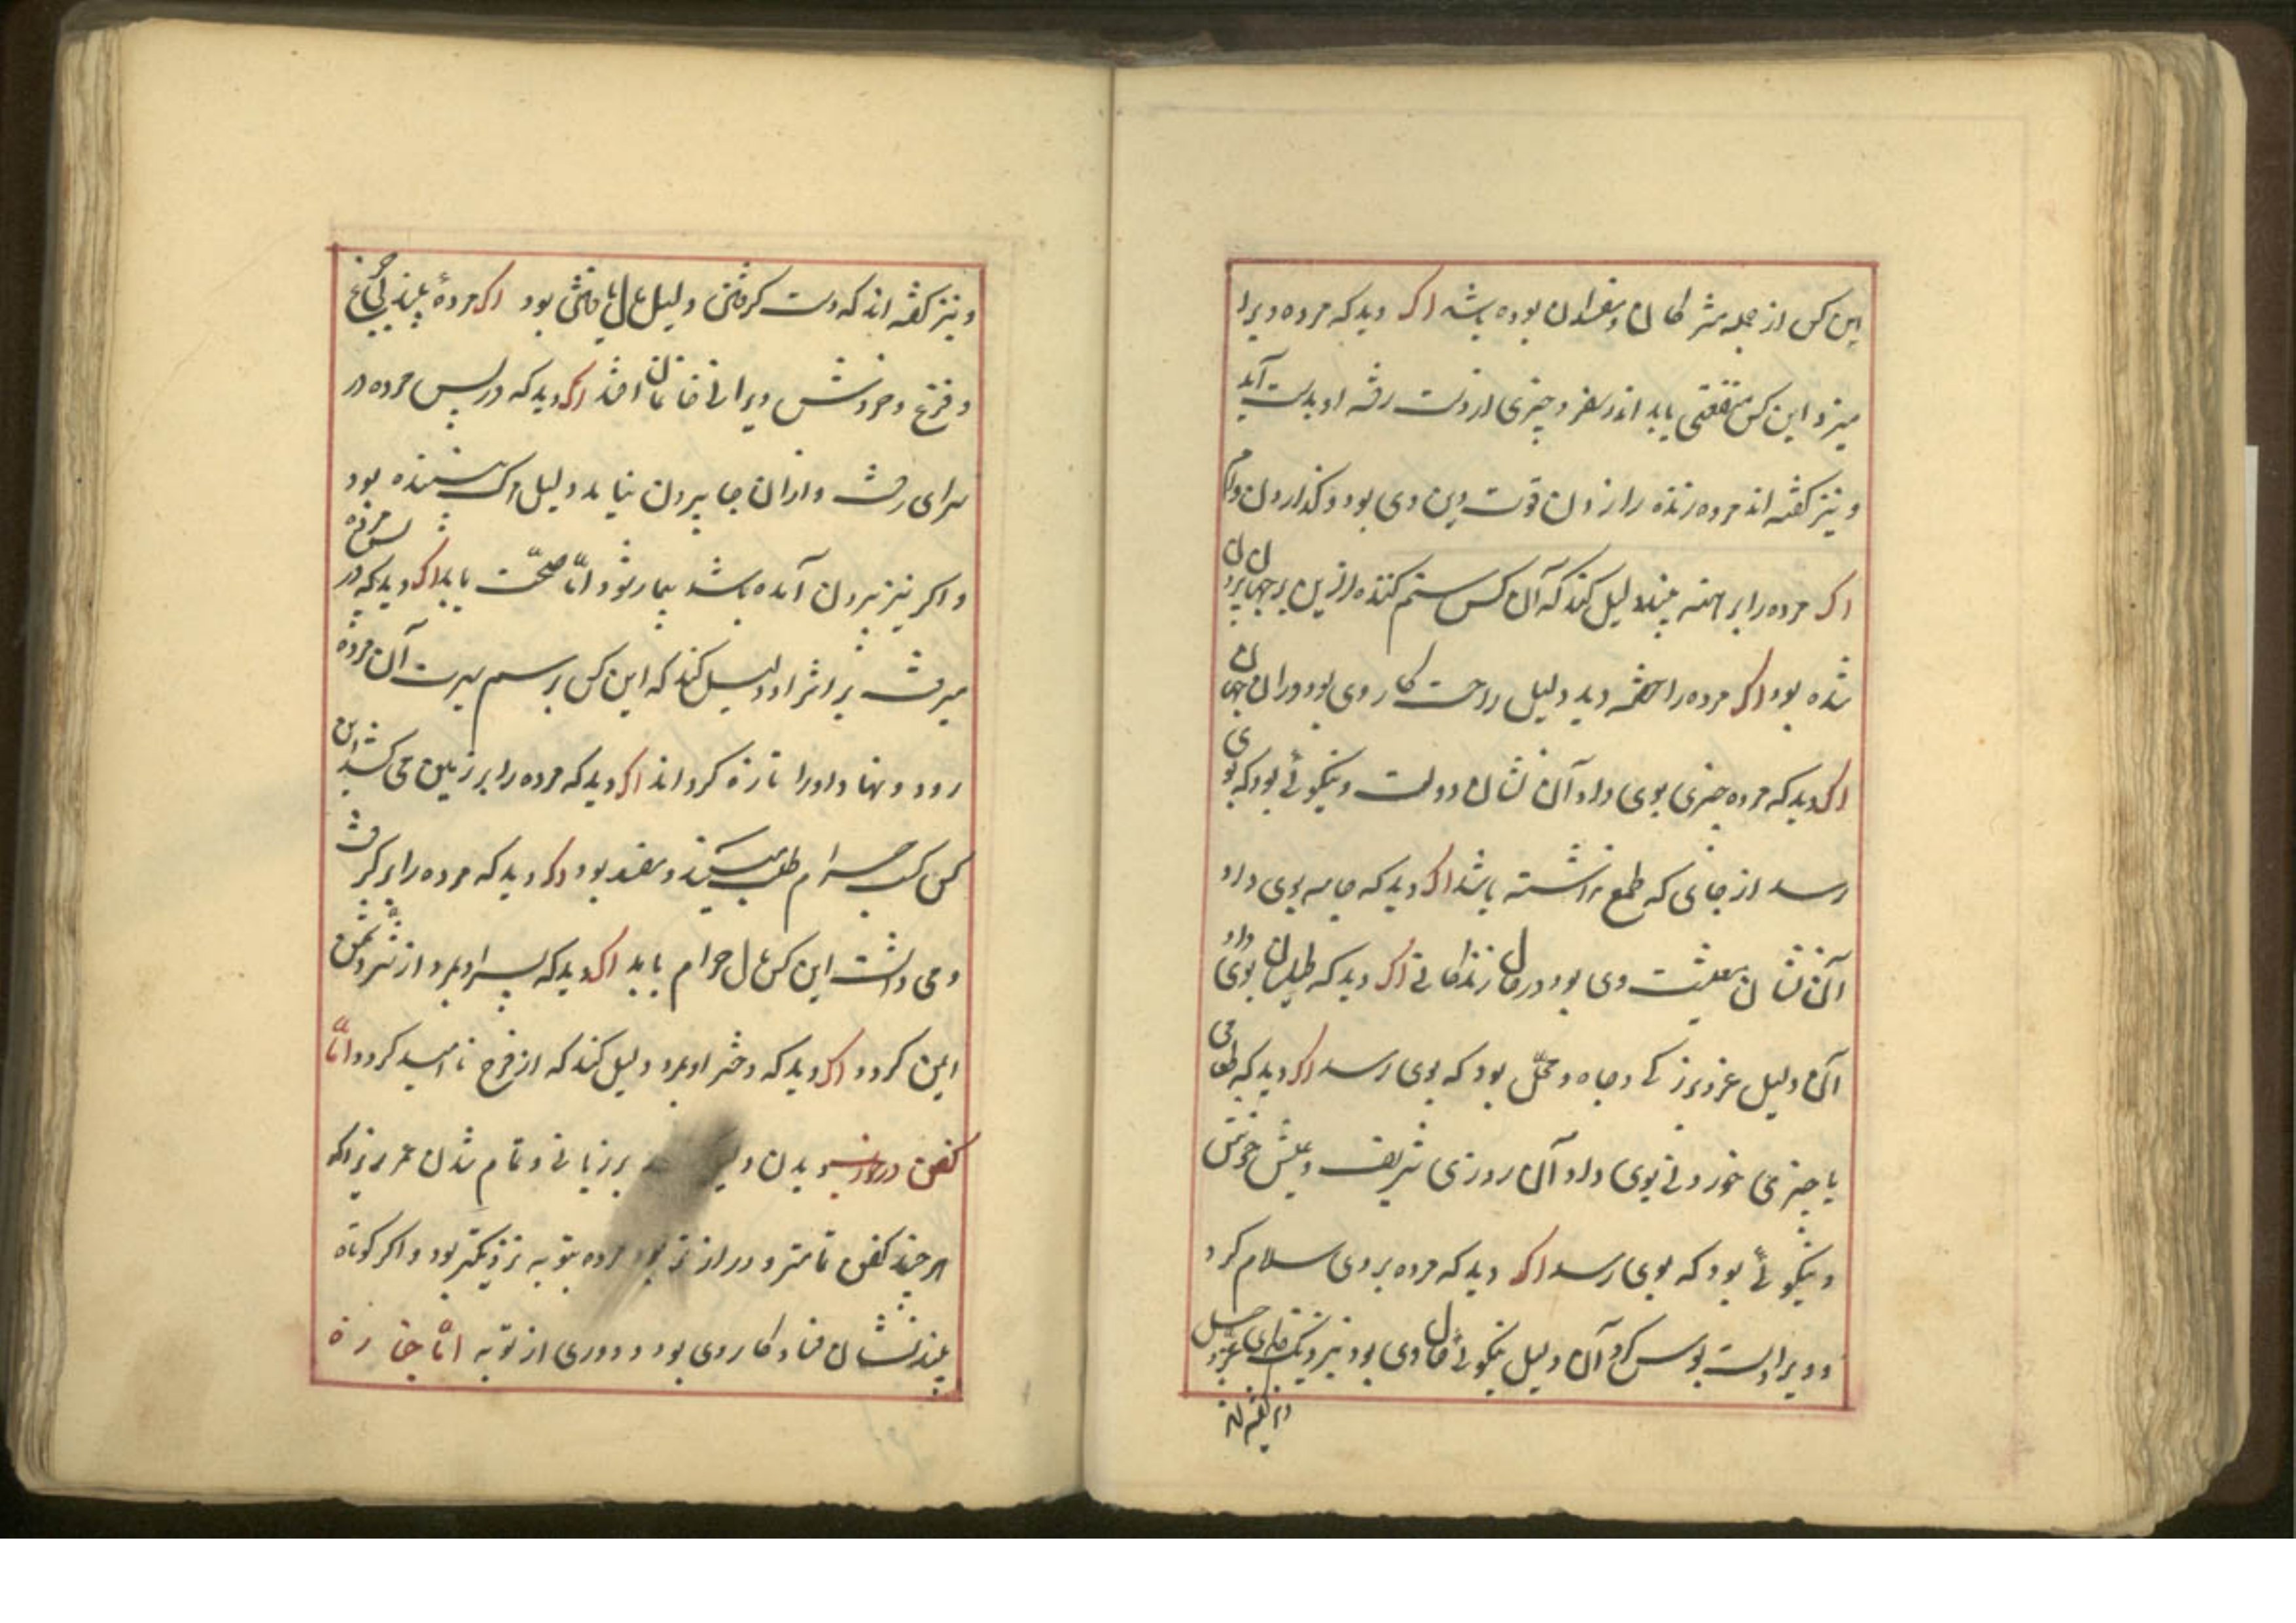 این کس از جمله مشرکان و مفسدان بوده باشد اکر دید که مرده ویرا
میزد این کس منفعتی یابد اندر سفر و چیزی از دست رفته او بدست آید
و نیز کفته اند مرده زنده را زدن قوت دین وی بود و کذاردن وام
اکر مرده را برهنه بیند دلیل کند که آن کس ستم کننده ازین جهان
شده بود اکر مرده را خفته دید دلیل راحت کار وی بود در آن جهان
اکر دید که مرده چیزی بوی داد آن نشان دولت و نیکوئی بود که بوی
رسد از جائی که طمع نداشته باشد اکر دید که جامه بوی داد
آن نشان معیشت وی بود در حال زندکانی اکر دید که طیلسان بوی داد
آن دلیل عز و بزرکی و جاه و محل بود که بوی رسد اکر دید که طعامی
یا چیزی خوردنی بوی داد آن روزی شریف و عیش خوش
و نیکوئی بود که بوی رسد اکر دید که مرده بر وی سلام کرد
و ویرا دست بوس کرد آن دلیل نیکوئی حال وی بود نزدیک خدای عز و جل
و نیز کفته اند
و نیز کفته اند که دست کرفتن دلیل مال یافتن بود اکر مردهٔ بیند
و فزع و خروش ویرا افتد اکر دید که در پس مرده در
سرای رفت و از آن جا بیرون نیاید دلیل مرک بیننده بود
و اکر نیز بیرون آمده باشد بیمار شود امّا صحّت یابد اکر دید که در پس مرده
میرفت بر اثر او دلیل کند که این کس بر رسم سیرت آن مرده
رود و نهاد او را تازه کرداند اکر دید که مرده را بر زمین می کشد این
کس کسب حرام طلب میکند و مفسد بود اکر دید که مرده را بر کرفت
و می داشت این کس مال حرام یابد اکر دید که پسر او بمرد از شر دشمن
ایمن کردد اکر دید که دختر او بمرد دلیل کند که از فرج نا امید کردد امّا
کفن در خواب دیدن بر زیانی و تمام شدن عمر زیراکه
هر چند کفن تمامتر و درازتر بود مرده بتوبه نزدیکتر بود و اکر کوتاه
بیند نشان فساد کار وی بود و دوری از توبه امّا جنازه